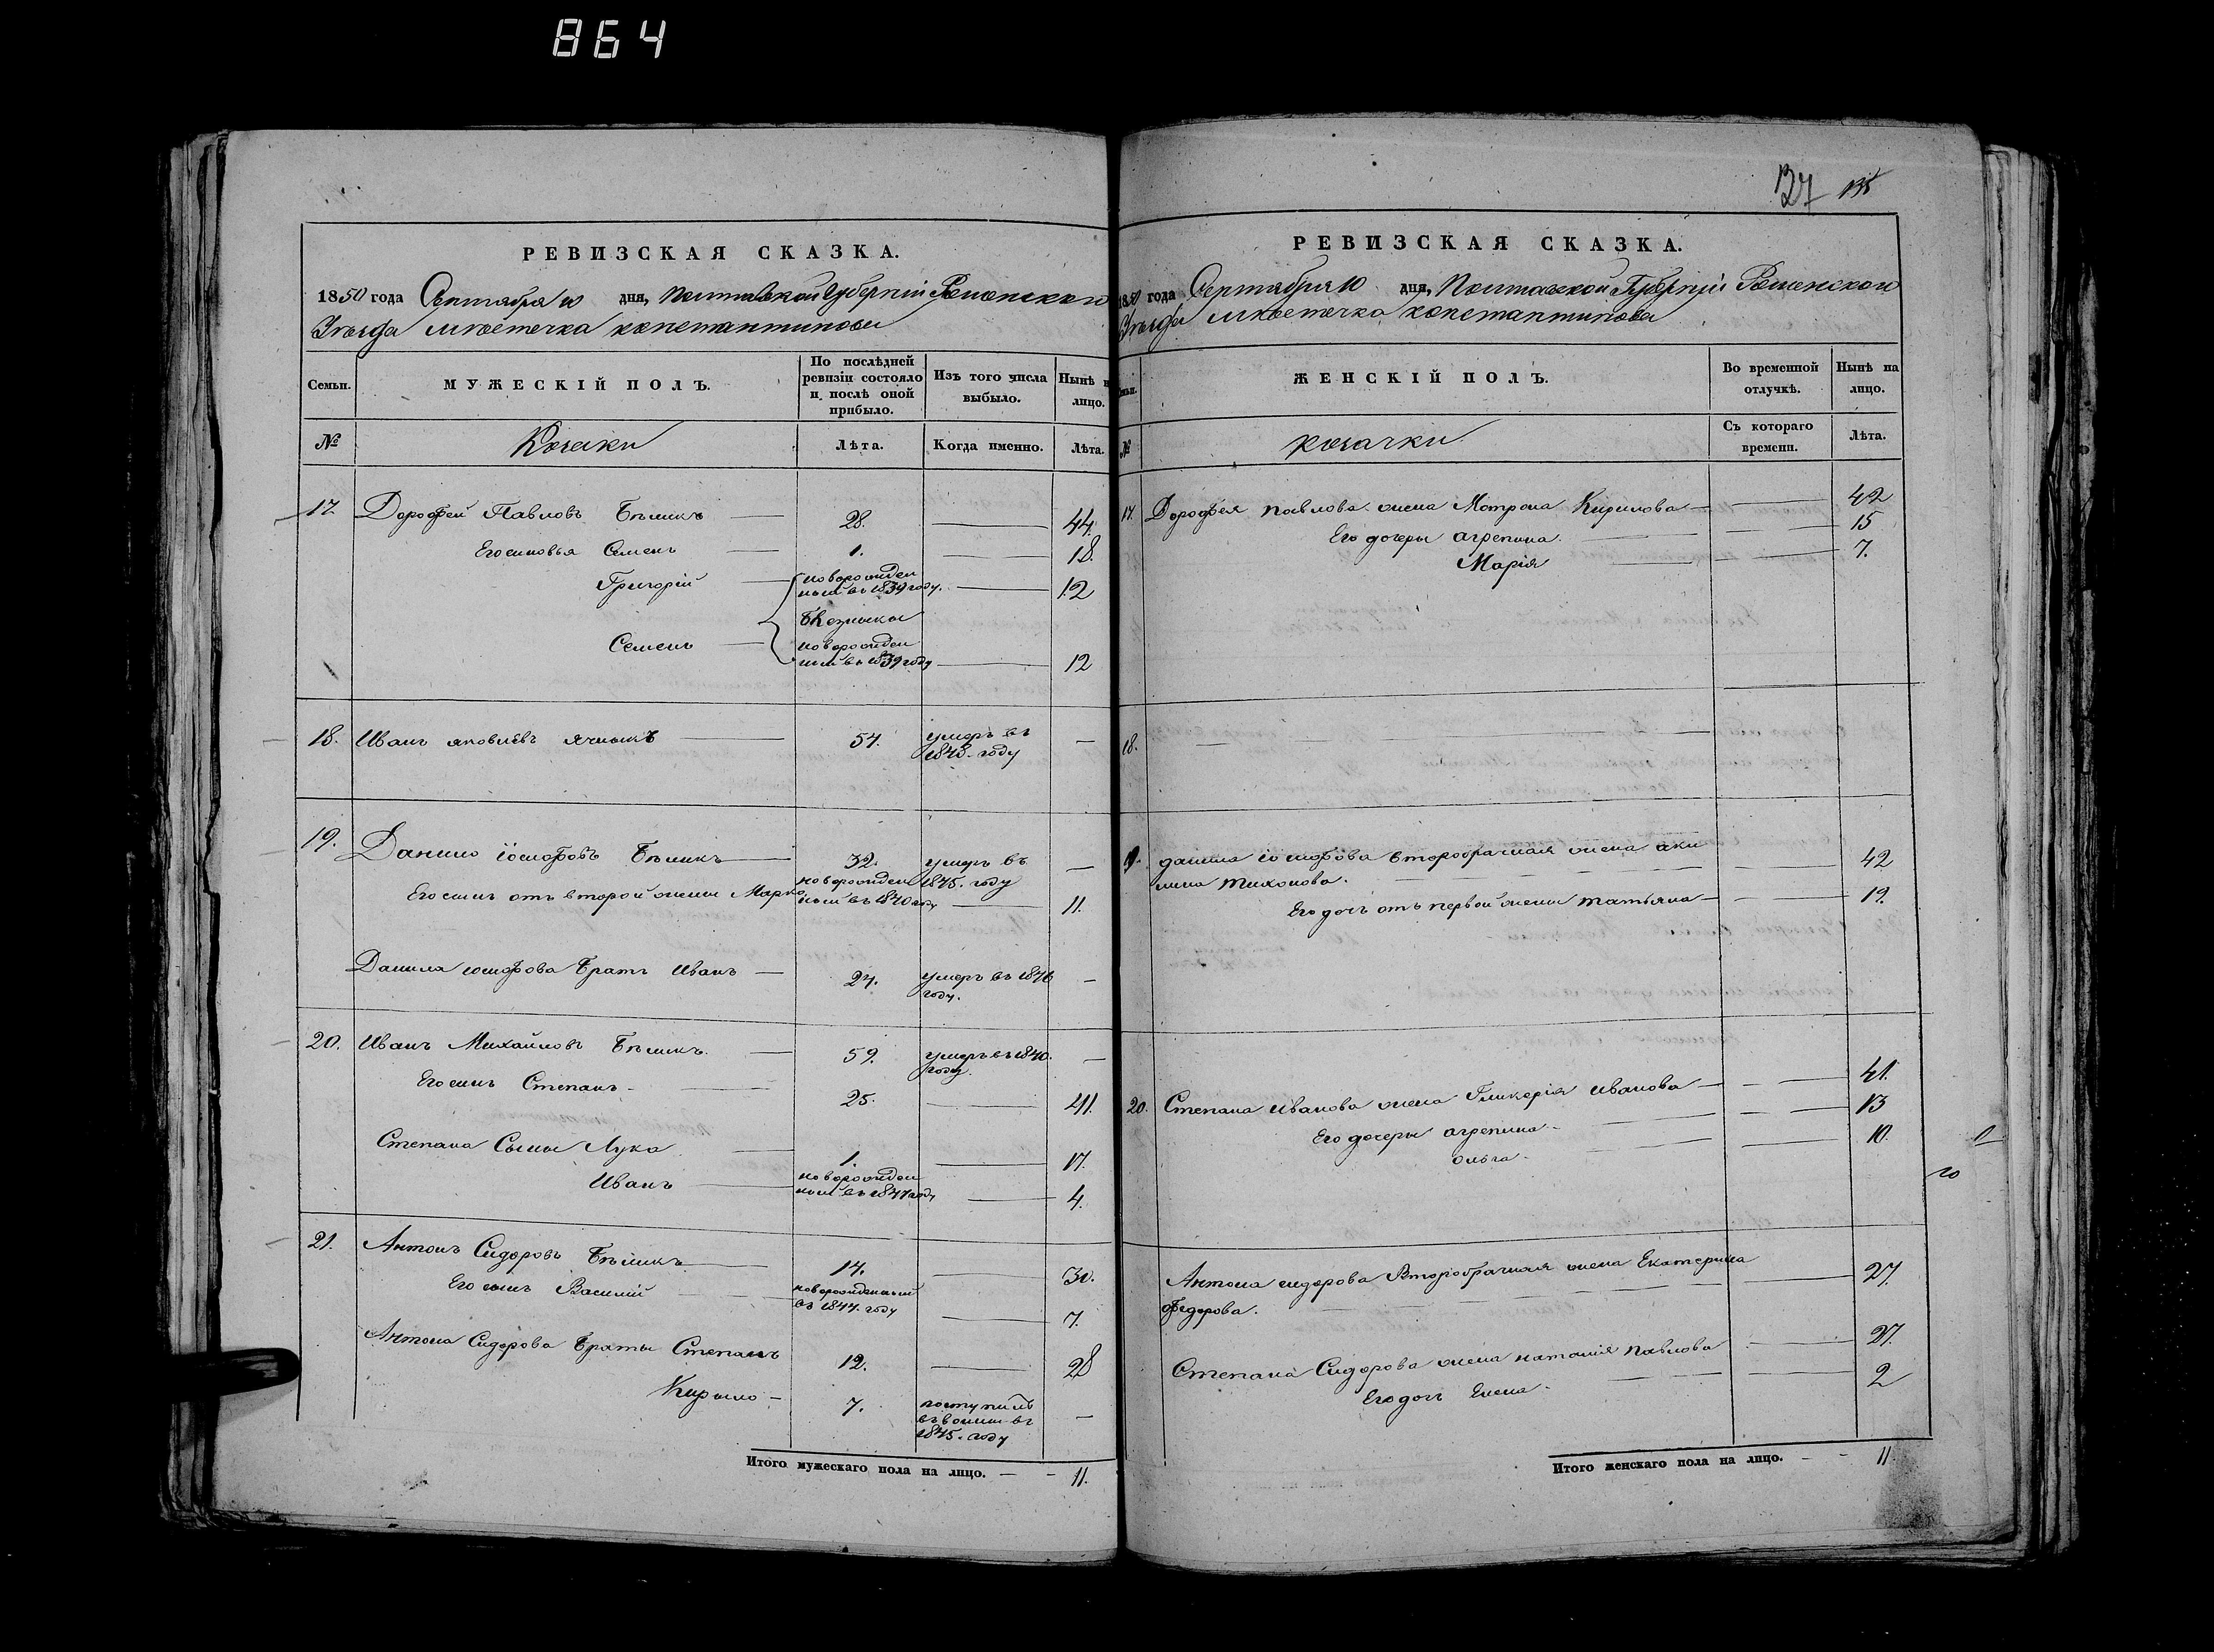 864
РЕВИЗСКАЯ СКАЗКА.
1850 года Сентября 10 дня, Полтавской Губерніи Роменского
Уѣзда мѣстечка константинова
Семьи.
МУЖЕСКІЙ ПОЛЪ.
По послѣдней ревизіи состояло и послѣ оной прибыло.
Изъ того числа выбыло.
Нынѣ н лицо.
№
Козаки
Лѣта.
Когда именно.
Лѣта.
17. Дорофей Павловъ Бѣликъ 28. 44.
Его сыновья Семенъ 1. 18.
Григорій новорожден ный въ 1839 году. 12
Близнюки
Семенъ новорожден ный въ 1839 году 12
18. Иванъ яковлевъ 54. умеръ въ 1843. году —
19. Данило іосифовъ Бѣликъ 32. умеръ въ 1845. году —
Его сынъ отъ второй жены Марко новорожден ный въ 1840 году 11.
Данила іосифова братъ Иванъ 24. умеръ въ 1846 году. —
20. Иванъ Михайловъ Бѣликъ. 59. умеръ въ 1840. году. —
Его сынъ Степанъ 25. 41.
Степана Сыны Лука 1. 17.
Иванъ новорожден ный въ 1847 году 4.
21. Антонъ Сидоровъ Бѣликъ 14. 30.
Его сынъ Василій новорожденный въ 1844. году 7.
Антона Сидорова Браты Степанъ 12. 28
Кирыло 7. поступилъ въ воины въ 1845. году —
Итого мужескаго пола на лицо. — 11.
127 135
РЕВИЗСКАЯ СКАЗКА.
1850 года Сентября 10 дня, Полтавской Губерніи Роменского
Уѣзда мѣстечка константинова
ЖЕНСКІЙ ПОЛЪ.
Во временной отлучкѣ.
Нынѣ на лицо.
№
козачки
Съ котораго времени.
Лѣта.
17. Дорофея павлова жена Мотрона Кирилова 42
Его дочеры агрепина. 15
Марія 7.
18. —
19. данила іосифова второбрачная жена аки лина тихонова. 42
Его дочъ отъ первой жены татьяна 19.
20. Степана иванова жена Гликерія иванова 41.
Его дочеры агрепина 13
ольга 10.
Антона сидорова Второбрачная жена Екатерина федорова. 27.
Степана Сидорова жена наталія павлова 27.
Его дочъ Елена 2
Итого женскаго пола на лицо. — 11